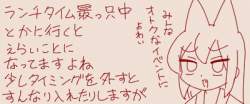 ランチタイム最っ只中
とかに行くと
えらいことに
なってますよね
少しタイミングを外すと
すんなり入れたりしますが
みんな
オトクなイベントに
よわい